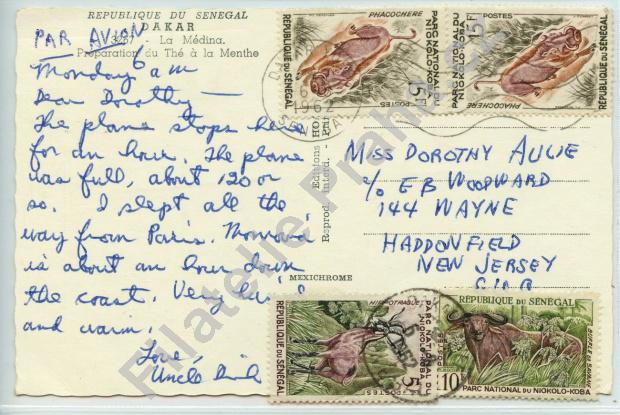 REPUBLIQUE DU SENEGAL
DAKAR
PAR AVION
3287 - La Médina.
Préparation du Thé à la Menthe
Monday 6 am
Dear Dorothy —
The plane stops here
for an hour. The plane
was full, about 120 or
so. I slept all the
way from Paris. Monrovia
is about an hour down
the coast. Very
and warm.
Love,
Uncle
Editions
Reprod. interd.
MEXICHROME
MISS DOROTHY AULIE
c/o EB WOODWARD
144 WAYNE
HADDONFIELD
NEW JERSEY
U.S.A.
RÉPUBLIQUE DU SÉNÉGAL
PHACOCHERE
POSTES
5F
PARC NATIONAL DU NIOKOLO-KOBA
PARC NATIONAL DU NIOKOLO-KOBA
15F
POSTES
PHACOCHERE
RÉPUBLIQUE DU SÉNÉGAL
1962
RÉPUBLIQUE DU SÉNÉGAL
HIPPOTRAGUE
PARC NATIONAL DU NIOKOLO-KOBA
5F
POSTES
RÉPUBLIQUE DU SÉNÉGAL
10F
POSTES
PARC NATIONAL DU NIOKOLO-KOBA
Filatelie Praha